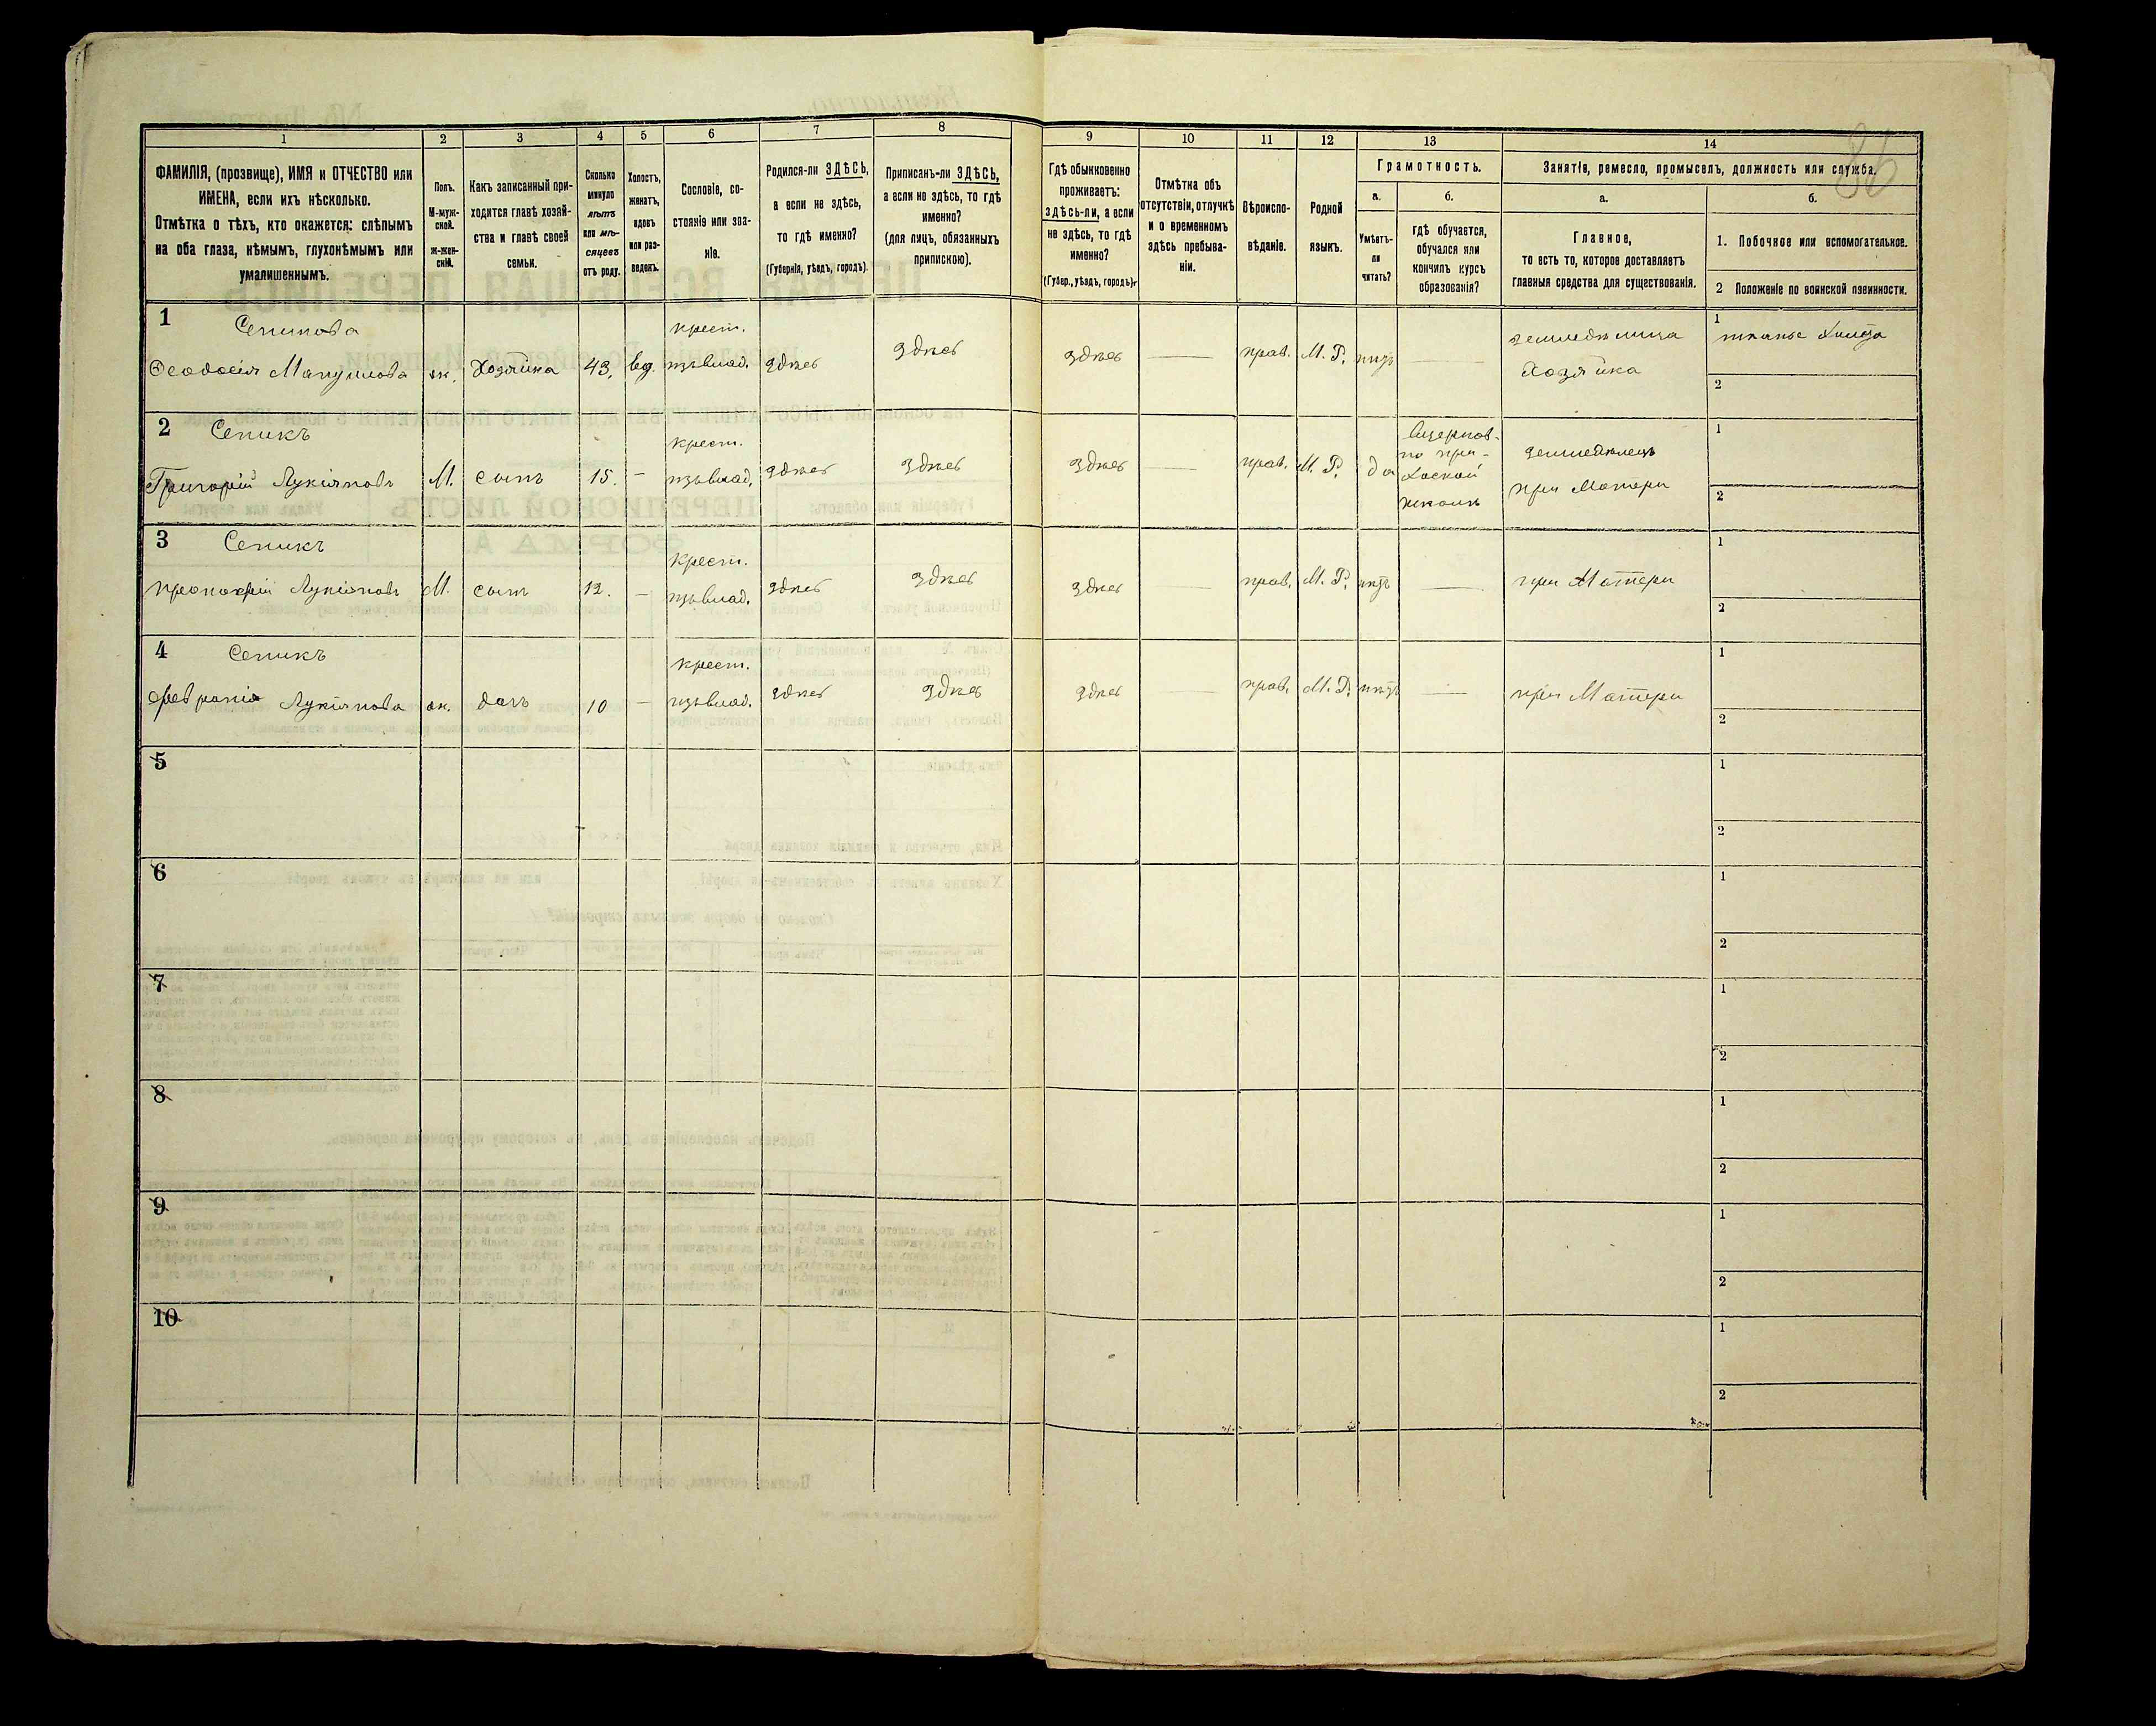 86
1
2
3
4
5
6
7
8
9
10
11
12
13
14
ФАМИЛІЯ, (прозвище), ИМЯ и ОТЧЕСТВО или
ИМЕНА, если ихъ нѣсколько.
Отмѣтка о тѣхъ, кто окажется: слѣпымъ
на оба глаза, нѣмымъ, глухонѣмымъ или
умалишеннымъ.
Полъ.
М-муж-
ской.
ж-жен-
скій.
Какъ записанный при-
ходится главѣ хозяй-
ства и главѣ своей
семьи.
Сколько
минуло
лѣтъ
или мѣ-
сяцевъ
отъ роду.
Холостъ,
женатъ,
вдовъ
или раз-
веденъ.
Сословіе, со-
стояніе или зва-
ніе.
Родился-ли ЗДѢСЬ,
а если не здѣсь,
то гдѣ именно?
(Губернія, уѣздъ, городъ).
Приписанъ-ли ЗДѢСЬ,
а если не здѣсь, то гдѣ
именно?
(для лицъ, обязанныхъ
припискою).
Гдѣ обыкновенно
проживаетъ:
здѣсь-ли, а если
не здѣсь, то гдѣ
именно?
(Губер., уѣздъ, городъ).
Отмѣтка объ
отсутствіи, отлучкѣ
и о временномъ
здѣсь пребыва-
ніи.
Вѣроиспо-
вѣданіе.
Родной
языкъ.
Грамотность.
а.
Умѣетъ-
ли
читать?
б.
гдѣ обучается,
обучался или
кончилъ курсъ
образованія?
Занятія, ремесло, промыселъ, должность или служба.
а.
Главное,
то есть то, которое доставляетъ
главныя средства для существованія.
б.
1. Побочное или вспомогательное.
2 Положеніе по воинской повинности.
1
Сепикова
Ѳеодосія
ж.
Хозяйка
43.
вд.
крест.
изъ влад.
здѣсь
здѣсь
здѣсь
прав.
М. Р.
нѣтъ
Хозяйка
1 тканье холста
2
2
Сепикъ
Григорій Лукіяновъ
М.
сынъ
15.
крест.
изъ влад.
здѣсь
здѣсь
здѣсь
прав.
М. Р.
да
вцерков-
но при-
хоской
школѣ
земледѣлецъ
при Матери
1
2
3
Сепикъ
Прокофій Лукіяновъ
М.
сынъ
12.
крест.
изъ влад.
здѣсь
здѣсь
здѣсь
прав.
М. Р.
нѣтъ
при Матери
1
2
4
Сепикъ
Лукіянова
ж.
дочь
10
крест.
изъ влад.
здѣсь
здѣсь
здѣсь
прав.
М. Р.
нѣтъ
при Матери
1
2
5
1
2
6
1
2
7
1
2
8
1
2
9
1
2
10
1
2